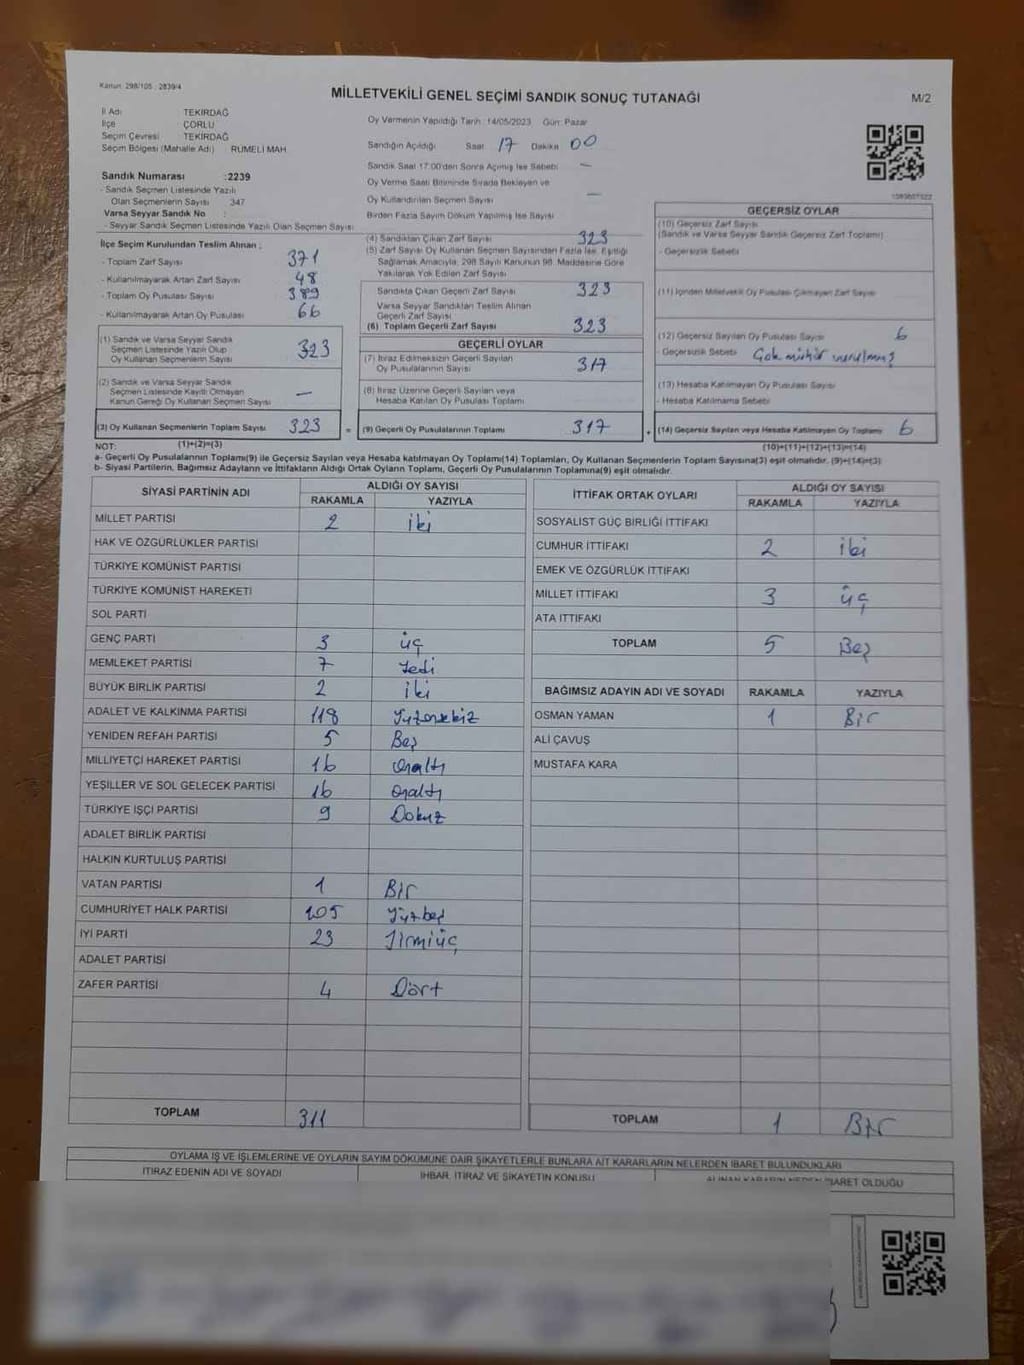 Kanun: 298/105 : 2839/4
MİLLETVEKİLİ GENEL SEÇİMİ SANDIK SONUÇ TUTANAĞI
M/2
İl Adı : TEKİRDAĞ
İlçe : ÇORLU
Seçim Çevresi : TEKİRDAĞ
Seçim Bölgesi (Mahalle Adı) RUMELİ MAH.
Sandık Numarası :2239
- Sandık Seçmen Listesinde Yazılı
Olan Seçmenlerin Sayısı 347
Varsa Seyyar Sandık No :
- Seyyar Sandık Seçmen Listesinde Yazılı Olan Seçmen Sayısı
Oy Vermenin Yapıldığı Tarih : 14/05/2023 Gün: Pazar
Sandığın Açıldığı Saat 17 Dakika 00
Sandık Saat 17:00'den Sonra Açılmış İse Sebebi : —
Oy Verme Saati Bitiminde Sırada Bekleyen ve
Oy Kullandırılan Seçmen Sayısı —
Birden Fazla Sayım Döküm Yapılmış İse Sayısı
İlçe Seçim Kurulundan Teslim Alınan ;
- Toplam Zarf Sayısı 371
- Kullanılmayarak Artan Zarf Sayısı 48
- Toplam Oy Pusulası Sayısı 389
- Kullanılmayarak Artan Oy Pusulası 66
(1) Sandık ve Varsa Seyyar Sandık
Seçmen Listesinde Yazılı Olup
Oy Kullanan Seçmenlerin Sayısı 323
(2) Sandık ve Varsa Seyyar Sandık
Seçmen Listesinde Kayıtlı Olmayan
Kanun Gereği Oy Kullanan Seçmen Sayısı —
(3) Oy Kullanan Seçmenlerin Toplam Sayısı 323 =
(4) Sandıktan Çıkan Zarf Sayısı 323
(5) Zarf Sayısı Oy Kullanan Seçmen Sayısından Fazla İse, Eşitliği
Sağlamak Amacıyla, 298 Sayılı Kanunun 98. Maddesine Göre
Yakılarak Yok Edilen Zarf Sayısı
Sandıkta Çıkan Geçerli Zarf Sayısı 323
Varsa Seyyar Sandıktan Teslim Alınan
Geçerli Zarf Sayısı
(6) Toplam Geçerli Zarf Sayısı 323
GEÇERLİ OYLAR
(7) İtiraz Edilmeksizin Geçerli Sayılan
Oy Pusulalarının Sayısı 317
(8) İtiraz Üzerine Geçerli Sayılan veya
Hesaba Katılan Oy Pusulası Toplamı
(9) Geçerli Oy Pusulalarının Toplamı 317 +
GEÇERSİZ OYLAR
(10) Geçersiz Zarf Sayısı
(Sandık ve Varsa Seyyar Sandık Geçersiz Zarf Toplamı)
- Geçersizlik Sebebi
(11) İçinden Milletvekili Oy Pusulası Çıkmayan Zarf Sayısı
(12) Geçersiz Sayılan Oy Pusulası Sayısı 6
- Geçersizlik Sebebi Çok mühür vurulmuş
(13) Hesaba Katılmayan Oy Pusulası Sayısı
- Hesaba Katılmama Sebebi
(14) Geçersiz Sayılan veya Hesaba Katılmayan Oy Toplamı 6
NOT: (1)+(2)=(3)
(10)+(11)+(12)+(13)=(14)
a- Geçerli Oy Pusulalarının Toplamı(9) ile Geçersiz Sayılan veya Hesaba katılmayan Oy Toplamı(14) Toplamları, Oy Kullanan Seçmenlerin Toplam Sayısına(3) eşit olmalıdır. (9)+(14)=(3)
b- Siyasi Partilerin, Bağımsız Adayların ve İttifakların Aldığı Ortak Oyların Toplamı, Geçerli Oy Pusulalarının Toplamına(9) eşit olmalıdır.
SİYASİ PARTİNİN ADI ALDIĞI OY SAYISI
RAKAMLA YAZIYLA
MİLLET PARTİSİ 2 iki
HAK VE ÖZGÜRLÜKLER PARTİSİ
TÜRKİYE KOMÜNİST PARTİSİ
TÜRKİYE KOMÜNİST HAREKETİ
SOL PARTİ
GENÇ PARTİ 3 üç
MEMLEKET PARTİSİ 7 Yedi
BÜYÜK BİRLİK PARTİSİ 2 iki
ADALET VE KALKINMA PARTİSİ 118 Yüzonsekiz
YENİDEN REFAH PARTİSİ 5 Beş
MİLLİYETÇİ HAREKET PARTİSİ 16 onaltı
YEŞİLLER VE SOL GELECEK PARTİSİ 16 onaltı
TÜRKİYE İŞÇİ PARTİSİ 9 Dokuz
ADALET BİRLİK PARTİSİ
HALKIN KURTULUŞ PARTİSİ
VATAN PARTİSİ 1 Bir
CUMHURİYET HALK PARTİSİ 105 Yüzbeş
İYİ PARTİ 23 Yirmiüç
ADALET PARTİSİ
ZAFER PARTİSİ 4 Dört
TOPLAM 311
İTTİFAK ORTAK OYLARI ALDIĞI OY SAYISI
RAKAMLA YAZIYLA
SOSYALİST GÜÇ BİRLİĞİ İTTİFAKI
CUMHUR İTTİFAKI 2 iki
EMEK VE ÖZGÜRLÜK İTTİFAKI
MİLLET İTTİFAKI 3 üç
ATA İTTİFAKI
TOPLAM 5 Beş
BAĞIMSIZ ADAYIN ADI VE SOYADI RAKAMLA YAZIYLA
OSMAN YAMAN 1 Bir
ALİ ÇAVUŞ
MUSTAFA KARA
TOPLAM 1 Bir
OYLAMA İŞ VE İŞLEMLERİNE VE OYLARIN SAYIM DÖKÜMÜNE DAİR ŞİKAYETLERLE BUNLARA AİT KARARLARIN NELERDEN İBARET BULUNDUKLARI
İTİRAZ EDENİN ADI VE SOYADI İHBAR, İTİRAZ VE ŞİKAYETİN KONUSU ALINAN KARARIN NEDEN İBARET OLDUĞU